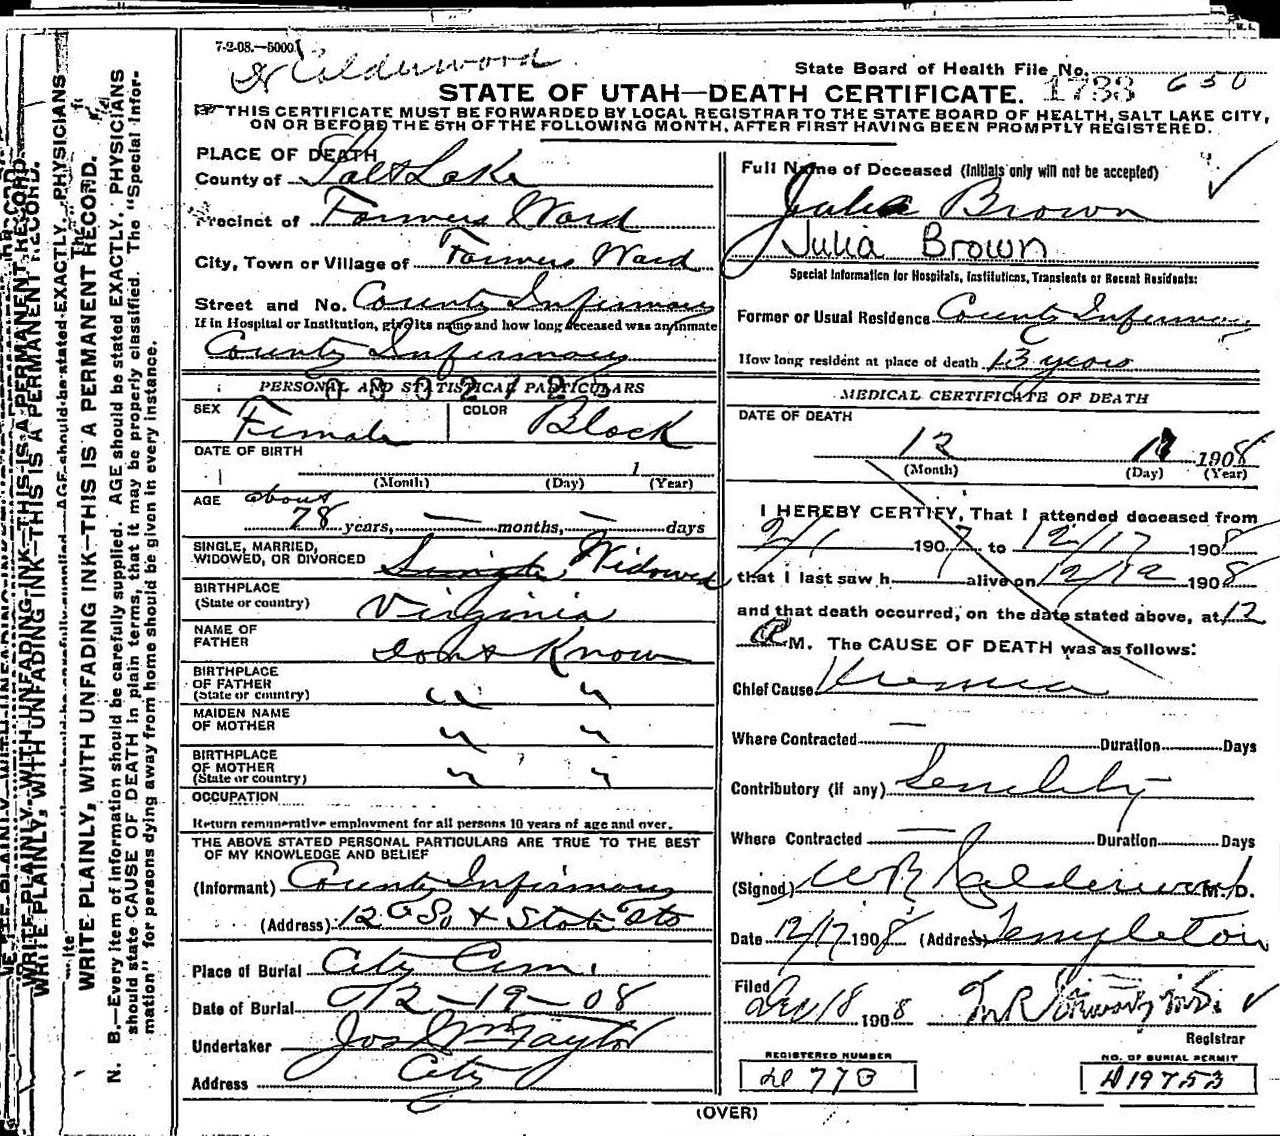 7-2-08.—5000
Dr Calderwood
State Board of Health File No. 1733 650
STATE OF UTAH—DEATH CERTIFICATE.
☞ THIS CERTIFICATE MUST BE FORWARDED BY LOCAL REGISTRAR TO THE STATE BOARD OF HEALTH, SALT LAKE CITY,
ON OR BEFORE THE 5TH OF THE FOLLOWING MONTH, AFTER FIRST HAVING BEEN PROMPTLY REGISTERED.
PLACE OF DEATH
County of Salt Lake
Precinct of Farmers Ward
City, Town or Village of Farmers Ward
Street and No. County Infirmary
If in Hospital or Institution, give its name and how long deceased was an inmate
County Infirmary
PERSONAL AND STATISTICAL PARTICULARS
SEX Female
COLOR Black
DATE OF BIRTH
(Month) (Day) 1 (Year)
AGE about
78 years, — months, — days
SINGLE, MARRIED,
WIDOWED, OR DIVORCED Single Widowed
BIRTHPLACE
(State or country) Virginia
NAME OF
FATHER Dont Know
BIRTHPLACE
OF FATHER
(State or country) " "
MAIDEN NAME
OF MOTHER " "
BIRTHPLACE
OF MOTHER
(State or country) " "
OCCUPATION
Return remunerative employment for all persons 10 years of age and over.
THE ABOVE STATED PERSONAL PARTICULARS ARE TRUE TO THE BEST
OF MY KNOWLEDGE AND BELIEF
(Informant) County Infirmary
(Address) 12 So & State Sts
Place of Burial City Cem.
Date of Burial 12-19-08
Undertaker Jos Wm Taylor
Address City
Full Name of Deceased (Initials only will not be accepted)
Julia Brown
Julia Brown
Special Information for Hospitals, Institutions, Transients or Recent Residents:
Former or Usual Residence County Infirmary
How long resident at place of death 13 years
MEDICAL CERTIFICATE OF DEATH
DATE OF DEATH
12 17 1908
(Month) (Day) (Year)
I HEREBY CERTIFY, That I attended deceased from
2/1 1907 to 12/17 1908
that I last saw h alive on 12/12 1908
and that death occurred, on the date stated above, at 12
A M. The CAUSE OF DEATH was as follows:
Chief Cause Uremia
Where Contracted — Duration Days
Contributory (if any) Senility
Where Contracted — Duration Days
(Signed) W R Calderwood M. D.
Date 12/17 1908 (Address) Templeton
Filed Dec 18 1908
Registrar
REGISTERED NUMBER
D 770
NO. OF BURIAL PERMIT
D19753
(OVER)
WRITE PLAINLY, WITH UNFADING INK—THIS IS A PERMANENT RECORD.
N. B.—Every item of information should be carefully supplied. AGE should be stated EXACTLY. PHYSICIANS
should state CAUSE OF DEATH in plain terms, that it may be properly classified. The "Special Infor-
mation" for persons dying away from home should be given in every instance.